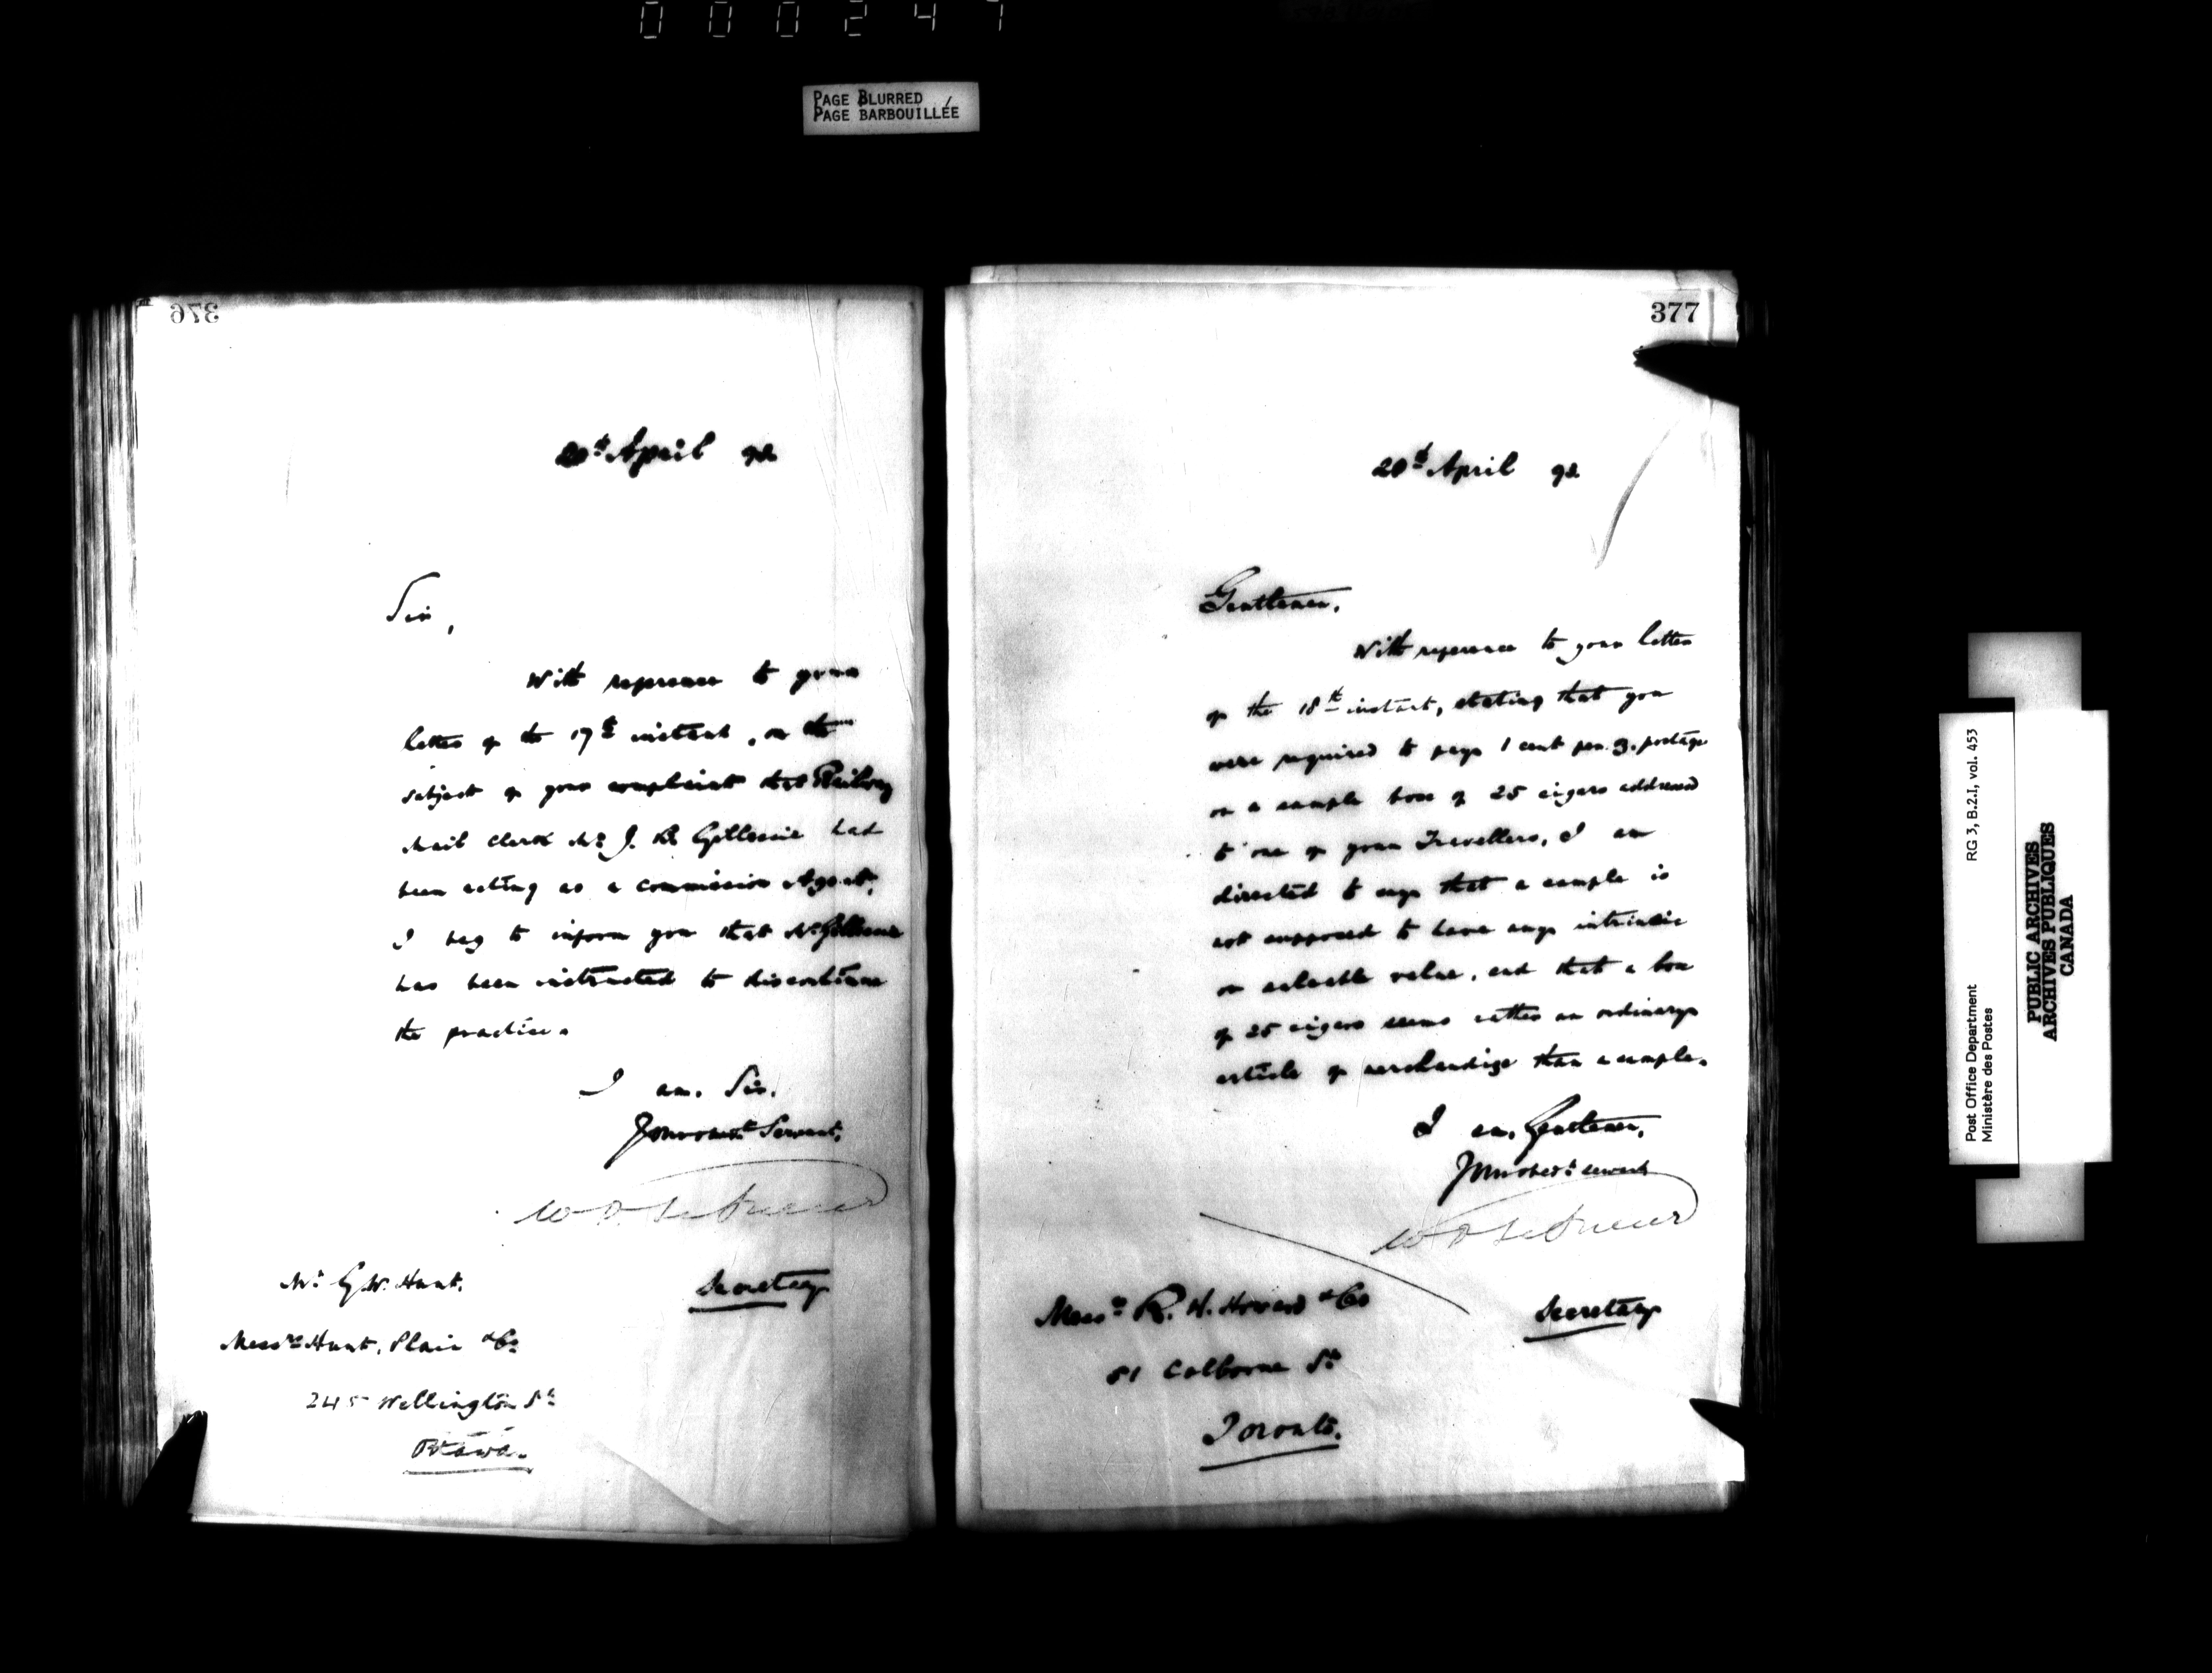 000247
PAGE BLURRED
PAGE BARBOUILLÉE
376
20th April 92
Sir,
With reference to your
letter of the 17th instant, on the
subject of your complaint that Railway
Mail Clerk Mr J. R. Gillessie had
been acting as a Commission Agent,
I beg to inform you that Mr Gillessie
has been instructed to discontinue
the practice.
I am, Sir,
Your obedt Servant,
W D LeSueur
Secretary
Mr G. W. Hunt,
Messrs Hunt, Blair & Co
245 Wellington St
Ottawa.
377
20th April 92
Gentlemen,
With reference to your letter
of the 18th instant, stating that you
were required to pay 1 cent per oz. postage
on a sample box of 25 cigars addressed
to one of your Travellers, I am
directed to say that a sample is
not supposed to have any intrinsic
or saleable value, and that a box
of 25 cigars seems rather an ordinary
article of merchandize than a sample.
I am, Gentlemen,
Your obedt servant
W D LeSueur
Secretary
Messrs R. H. Howard & Co
51 Colborne St
Toronto.
Post Office Department
Ministère des Postes
RG 3, B.2.I, vol. 453
PUBLIC ARCHIVES
ARCHIVES PUBLIQUES
CANADA